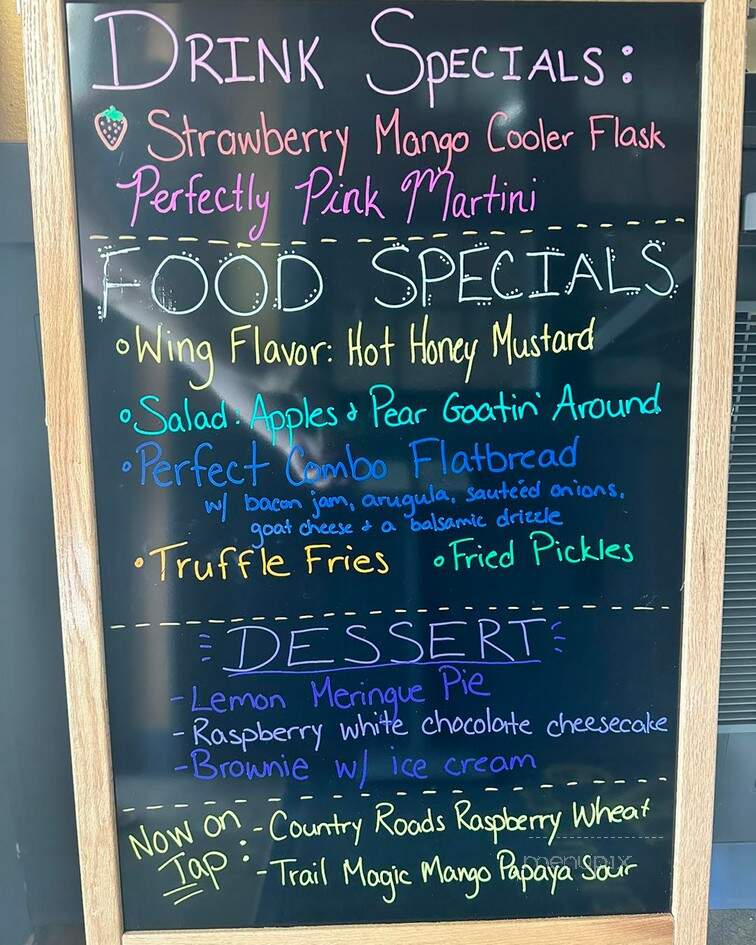 DRINK SPECIALS:
Strawberry Mango Cooler Flask
Perfectly Pink Martini
FOOD SPECIALS
•Wing Flavor: Hot Honey Mustard
•Salad: Apples & Pear Goatin' Around
•Perfect Combo Flatbread
w/ bacon jam, arugula, sauteéd onions,
goat cheese & a balsamic drizzle
•Truffle Fries •Fried Pickles
DESSERT
-Lemon Meringue Pie
-Raspberry white chocolate cheesecake
-Brownie w/ ice cream
Now on Tap:
-Country Roads Raspberry Wheat
-Trail Magic Mango Papaya Sour
menupix